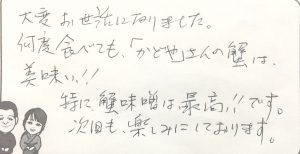 大変お世話になりました。
何度食べても、「かどや」さんの蟹は、
美味い!!
特に蟹味噌は最高!!です。
次回も、楽しみにしております。